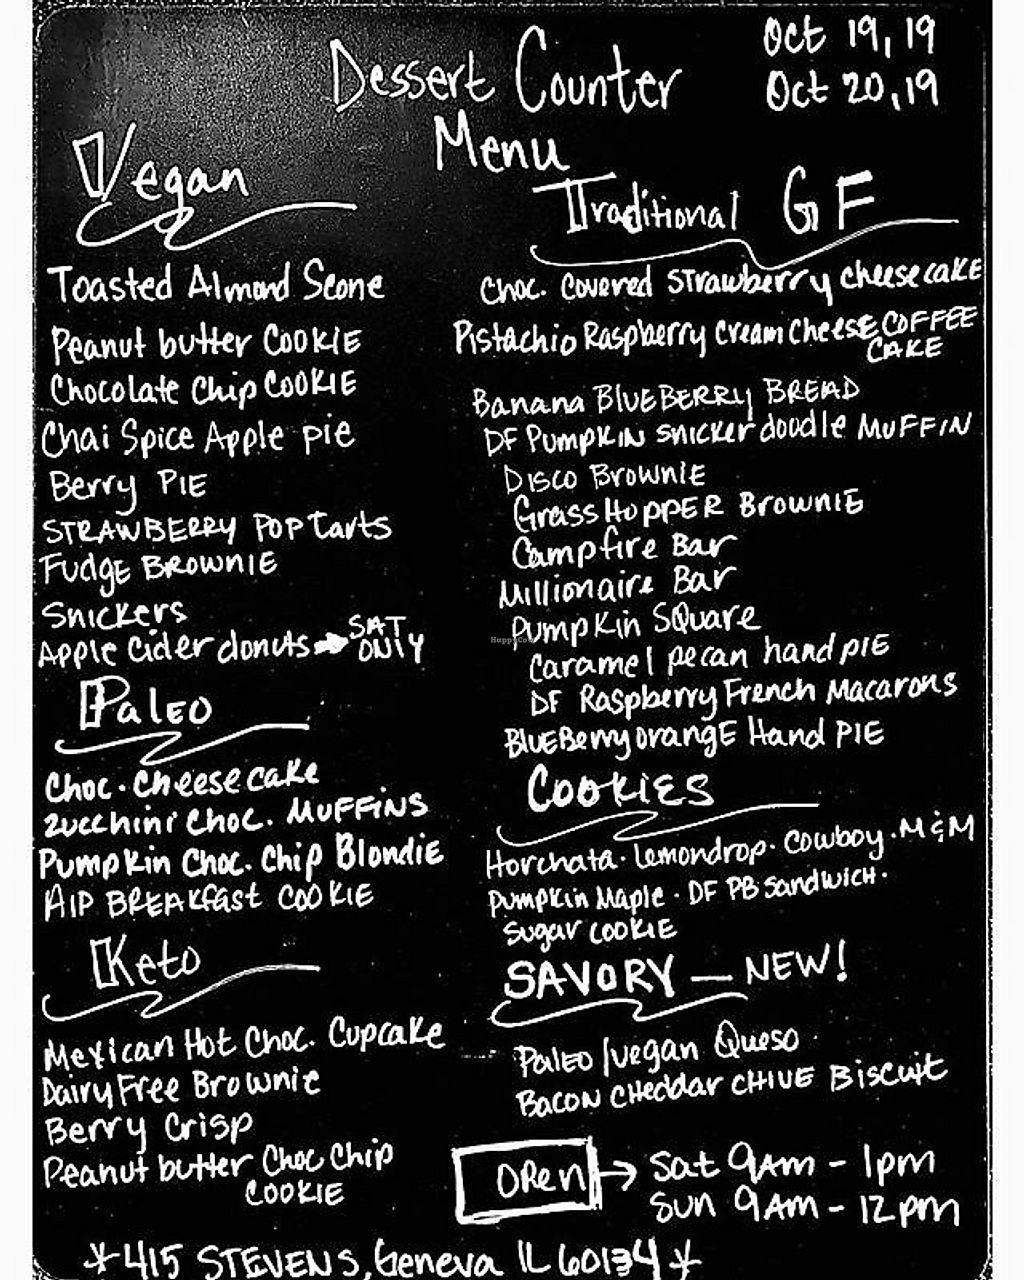 Dessert Counter
Menu
Oct 19, 19
Oct 20, 19
Vegan
Toasted Almond Scone
Peanut butter COOKIE
Chocolate Chip COOKIE
Chai Spice Apple pie
Berry PIE
STRAWBERRY POP Tarts
Fudge BROWNIE
Snickers
Apple Cider donuts → SAT ONLY
Paleo
Choc. Cheesecake
Zucchini Choc. MUFFINS
Pumpkin Choc. Chip Blondie
AIP BREAKfast COOKIE
Keto
Mexican Hot Choc. Cupcake
Dairy Free Brownie
Berry Crisp
Peanut butter Choc Chip
COOKIE
Traditional GF
Choc. Covered Strawberry Cheesecake
Pistachio Raspberry Cream Cheese COFFEE
CAKE
Banana BLUEBERRY BREAD
DF PUMPKIN snickerdoodle MUFFIN
Disco Brownie
GrassHOPPER BROWNIE
Campfire Bar
Millionaire Bar
Pumpkin Square
Caramel pecan hand PIE
DF Raspberry French Macarons
BlueBerry orange Hand PIE
COOKIES
Horchata · Lemondrop · Cowboy · M&M
Pumpkin Maple · DF PB Sandwich ·
Sugar COOKIE
SAVORY — NEW!
Paleo/vegan Queso
Bacon CHeddar CHIVE Biscuit
OPen → Sat 9AM - 1pm
Sun 9AM - 12pm
*415 STEVENS, Geneva IL 60134*
HappyCow